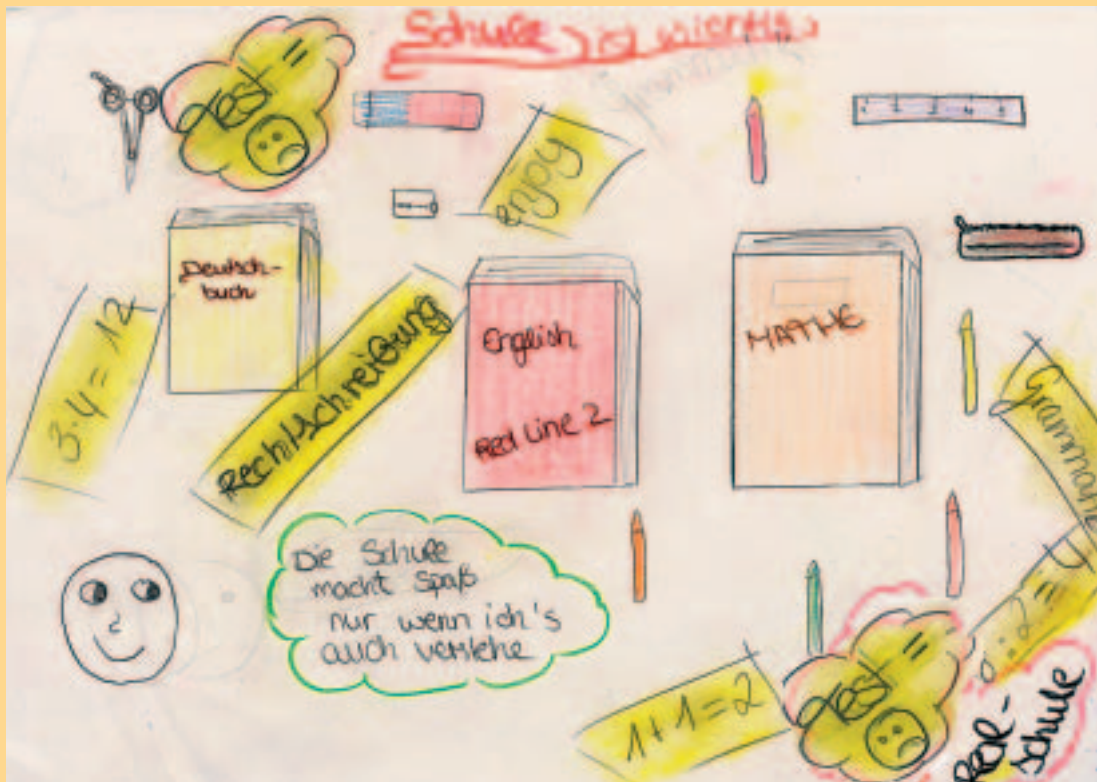 Schule ist wichtig
Test =
enjoy
Deutsch-
buch
3·4=12
Rechtschreibung
English
Red Line 2
MATHE
Grammatik
Die Schule
macht Spaß
nur wenn ich's
auch verstehe
1+1=2
Test =
:2=
Real-
schule